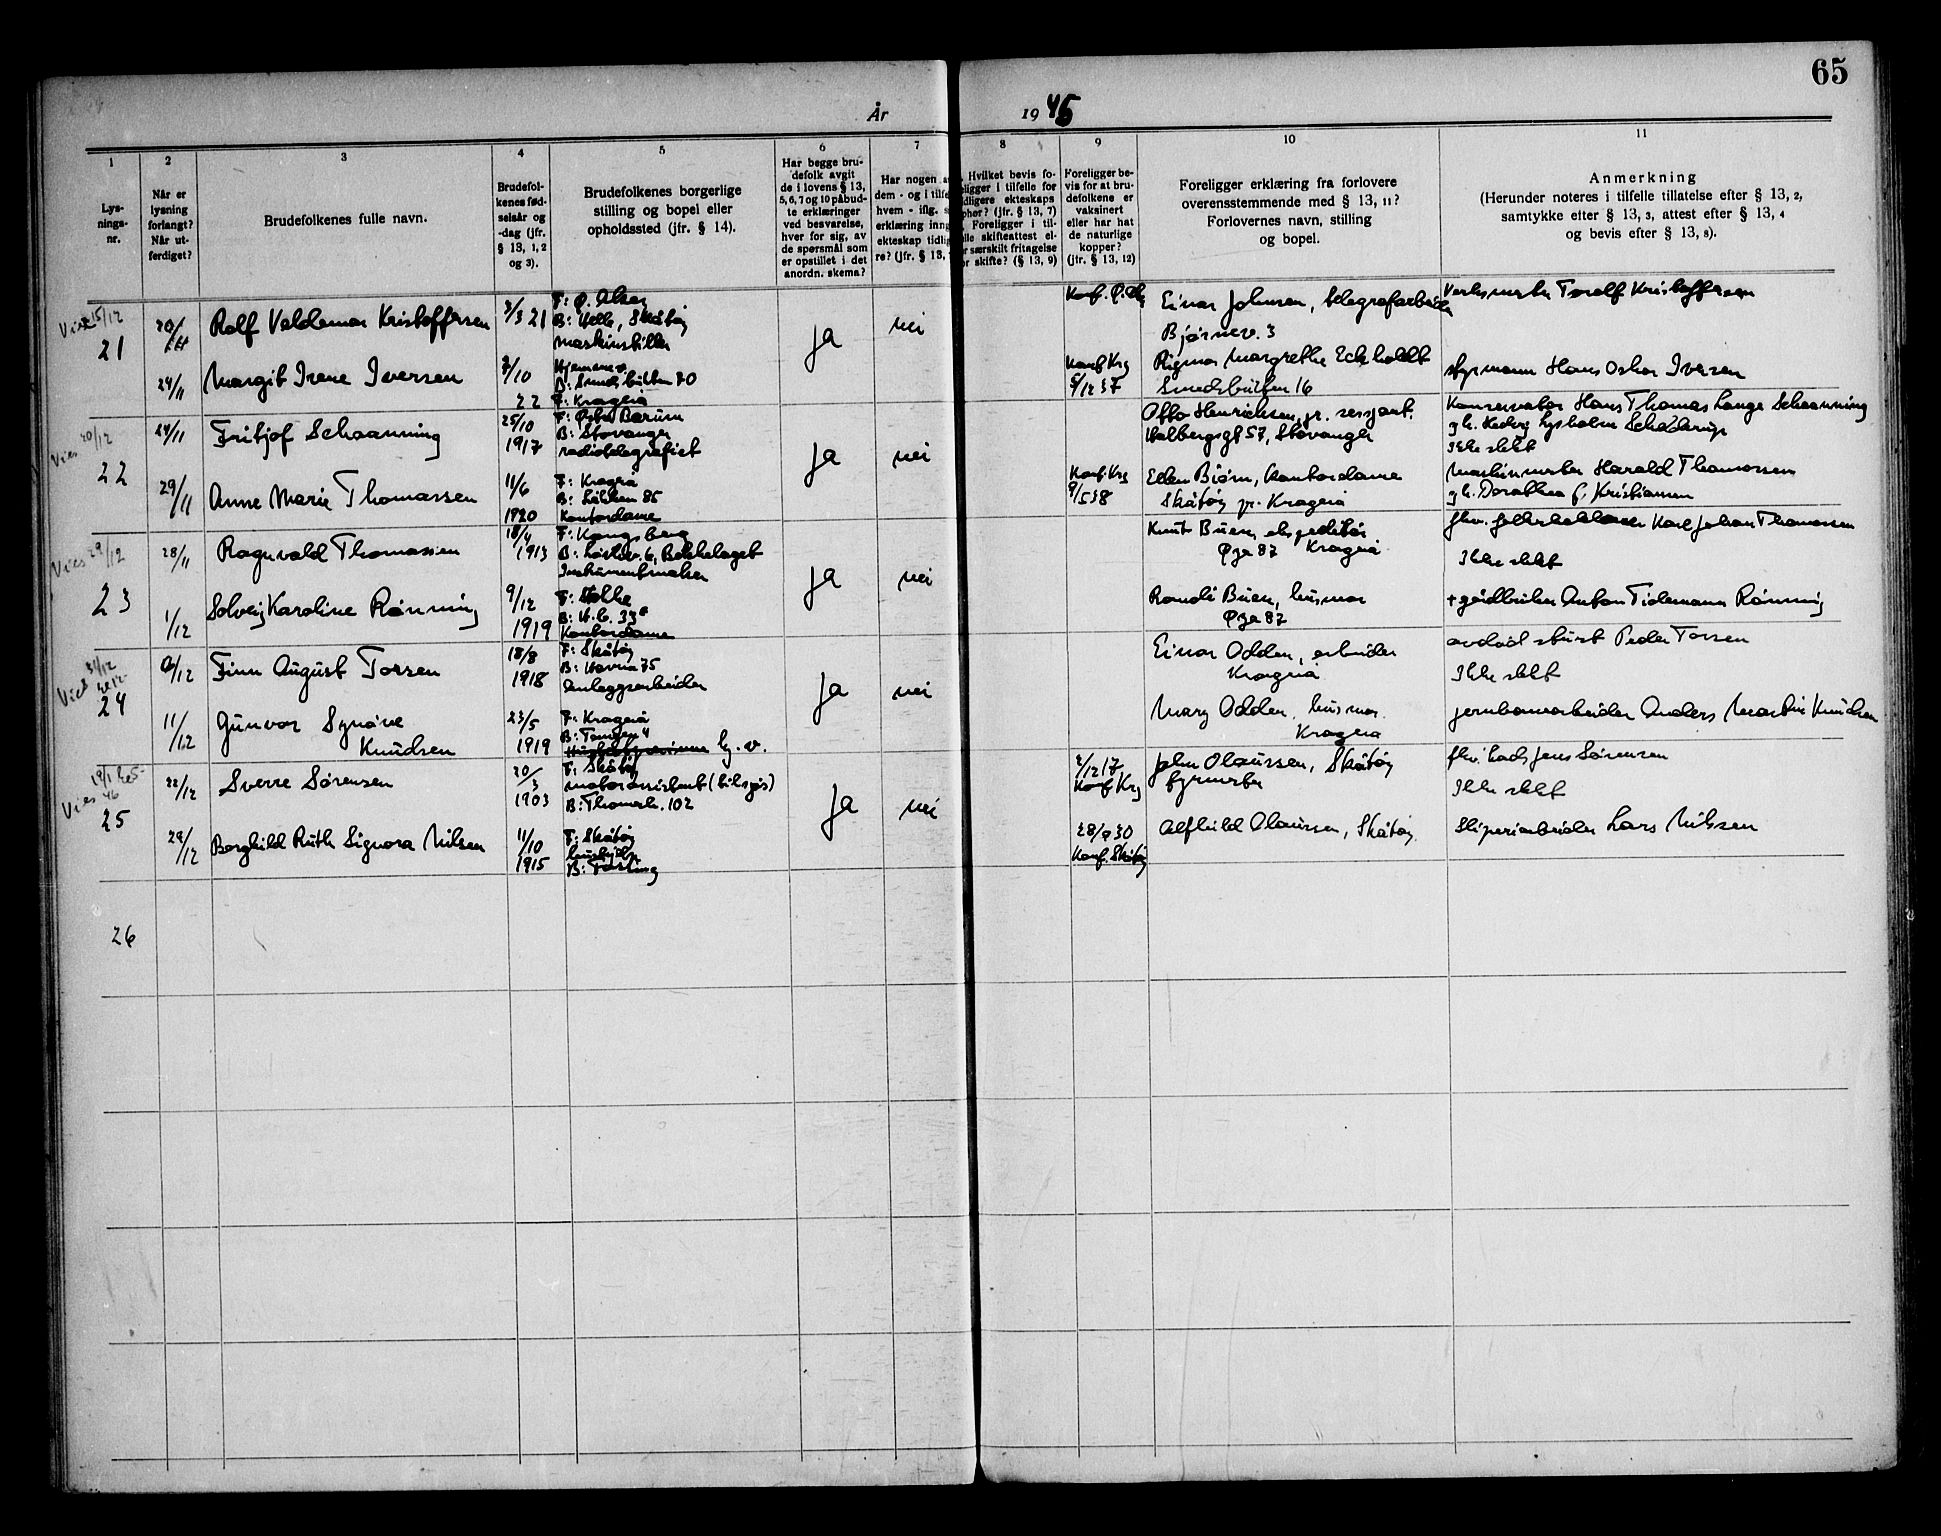 65
År 1945
1
2
3
4
5
6
7
8
9
10
11
Lys-
nings-
nr.
Når er
lysning
forlangt?
Når ut-
ferdiget?
Brudefolkenes fulle navn.
Brudefol-
kenes fød-
selsår og
-dag (jfr.
§ 13, 1, 2
og 3).
Brudefolkenes borgerlige
stilling og bopel eller
opholdssted (jfr. § 14).
Har begge bru-
defolk avgit
de i lovens § 13,
5, 6, 7 og 10 påbud-
te erklæringer
ved besvarelse,
hver for sig, av
de spørsmål som
er opstillet i det
anordn. skema?
Har nogen a
dem - og i tilfe
hvem - iflg. s
erklæring inng
ekteskap tidlig
re? (jfr. § 13,
Hvilket bevis fo-
eligger i tilfelle for
idligere ekteskaps
pher? (jfr. § 13, 7)
Foreligger i til-
lle skifteattest el-
r særskilt fritagelse
or skifte? (§ 13, 9)
Foreligger be-
vis for at bru-
defolkene er
vaksinert
eller har hat
de naturlige
kopper?
(jfr. § 13, 12)
Foreligger erklæring fra forlovere
overensstemmende med § 13, 11?
Forlovernes navn, stilling
og bopel.
Anmerkning
(Herunder noteres i tilfelle tillatelse efter § 13, 2,
samtykke efter § 13, 3, attest efter § 13, 4
og bevis efter § 13, 8).
Viet 15/12
21
Rolf Valdemar Kristoffersen
3/3 21
B: Helle, Skåtøy
maskinstiller
ja
nei
Einar Johnsen, telegrafarbeider
Bjørnev. 3
Verksmester Toralf Kristoffersen
24/11
Margit Irene Iversen
7/10
22
B: Smedsbukten 70
F: Kragerø
Konf Krg
5/12 37
Rigmor Margrethe Eckholdt
Smedsbukten 16
styrmann Hans Oskar Iversen
Vies 20/12
22
24/11
Fritjof Schaanning
25/10
1917
F: Østre Bærum
B: Stavanger
radiotelegrafist
ja
nei
Otto Henrichsen jr. sersjant.
Holbergsgt 57, Stavanger
Konservator Hans Thomas Lange Schaanning
Ikke slekt
29/11
Anne Marie Thomassen
11/6
1920
F: Kragerø
B: Løkken 85
Kontordame
Konf Krg
9/5 38
Ellen Bjørn, kontordame
Skåtøy pr. Kragerø
Maskinmester Harald Thomassen
g.h. Dorothea f. Kristiansen
Vies 29/12
23
28/11
Ragnvald Thomassen
18/4
1913
F: Kongsberg
Bekkelaget
Instrumentmaker
ja
nei
Knut Buen, ekspeditør
Øya 87 Kragerø
Karl Johan Thomassen
Ikke slekt
1/12
Solveig Karoline Rønning
9/12
1919
Kontordame
Randi Buen, husmor
Øya 87
+ gårdbruker Anton Tidemann Rønning
Viet 31/12
24
Finn August Torsen
18/8
1918
F: Skåtøy
B: Havna 75
Anleggsarbeider
ja
nei
Einar Odden, arbeider
Kragerø
avdød stuert Peder Torsen
Ikke slekt
11/12
Gunvor Synøve
Knudsen
23/5
1919
F: Kragerø
B: Tangen 4
Mary Odden, husmor.
Kragerø
jernbanearbeider Anders Martin Knudsen
Vies 19/1
46
25
22/12
Sverre Sørensen
20/3
1903
F: Skåtøy
B: Thomesh. 102
ja
nei
2/12 17
Konf Krg
John Olaussen, Skåtøy
fyrmester
fhv. lods Jens Sørensen
Ikke slekt
29/12
Borghild Ruth Signora Nilsen
11/10
1915
F: Skåtøy
hushjelp
28/9 30
Konf. Skåtøy
Alfhild Olaussen, Skåtøy.
Sliperiarbeider Lars Nilsen
26